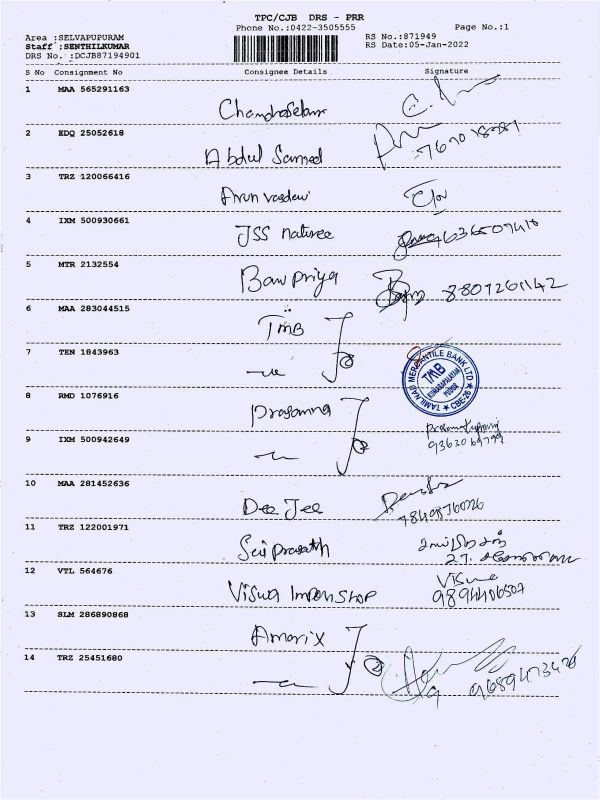 TPC/CJB DRS - PRR
Phone No.:0422-3505555
Page No.:1
Area :SELVAPUPURAM
Staff :SENTHILKUMAR
DRS No. :DCJB87194901
RS No.:871949
RS Date:05-Jan-2022
S No Consignment No Consignee Details Signature
1 MAA 565291163
2 EDQ 25052618
Abdul Samed
3 TRZ 120066416
Arun vasdev
4 IXM 500930661
JSS naturee
5 MTR 2132554
Banupriya 8807261142
6 MAA 283044515
TMB
7 TEN 1843963
TAMILNAD MERCANTILE BANK LTD
TMB
CBE-26
8 RMD 1076916
Prasanna
9 IXM 500942649
10 MAA 281452636
Dee Jee
11 TRZ 122001971
Sai prasath
12 VTL 564676
Viswa Imponshop
13 SLM 286890868
Amorix
14 TRZ 25451680